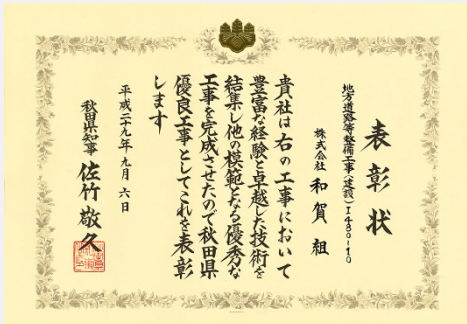 表彰状
地方道路等整備工事(建設)I480-40
株式会社 和賀組
貴社は右の工事において
豊富な経験と卓越した技術を
結集し他の模範となる優秀な
工事を完成させたので秋田県
優良工事としてこれを表彰
します
平成二十九年九月六日
秋田県知事 佐竹敬久